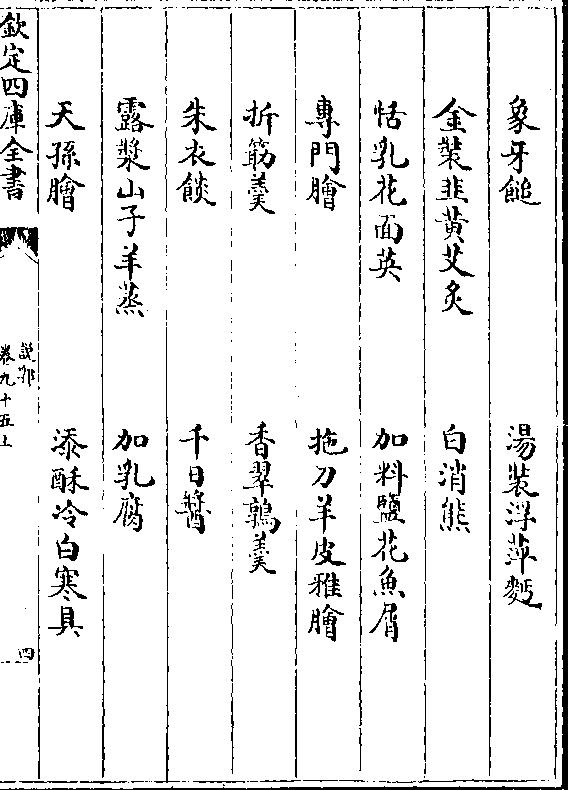 象牙䭔　湯裝浮萍麪
金裝韭黃艾炙　白消熊
恬乳花面英　加料鹽花魚屑
專門膾　拖刀羊皮雅膾
折筋羹　香翠鶉羹
朱衣餤　千日醬
露漿山子羊蒸　加乳腐
天孫膾　添酥冷白寒具
欽定四庫全書
說郛
卷九十五上
四